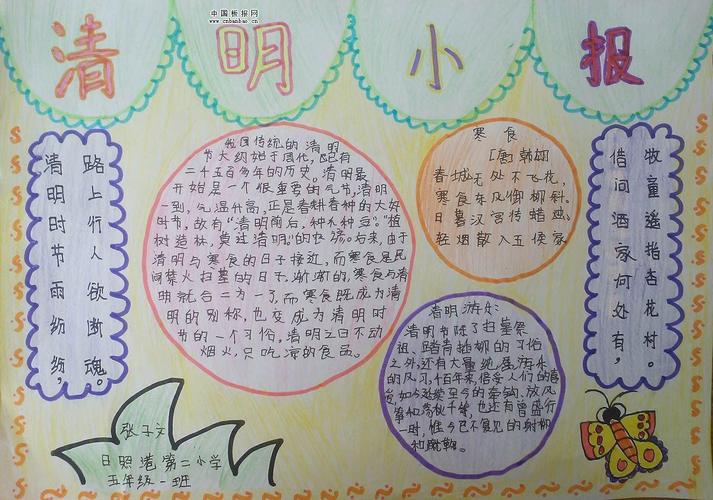 中国板报网
www.cnbanbao.cn
清明小报
清明时节雨纷纷,
路上行人欲断魂。
我国传统的清明
节大约始于周代,已有
二千五百多年的历史。清明最
开始是一个很重要的气节,清明
一到,气温升高,正是春耕春种的大好
时节,故有"清明前后,种瓜种豆"。"植
树造林,莫过清明。"的农谚。后来,由于
清明与寒食的日子接近,而寒食是民
间禁火扫墓的日子,渐渐的,寒食与清
明就合二为一了,而寒食既成为清
明的别称,也变成为清明时
节的一个习俗,清明之日不动
烟火,只吃凉的食品。
寒食
[唐]韩翃
春城无处不飞花,
寒食东风御柳斜。
日暮汉宫传蜡烛,
轻烟散入五侯家
清明游乐:
清明节除了扫墓祭
祖、踏青插柳的习俗
之外,还有大量绝美游乐
的风习,千百年来,倍受人们的喜
爱,如今延续至今的牵钩、放风
筝和荡秋千等,也还有曾盛行
一时,惟今已不复见的射柳
和蹴鞠。
借问酒家何处有,
牧童遥指杏花村。
张子文
日照港第二小学
五年级一班